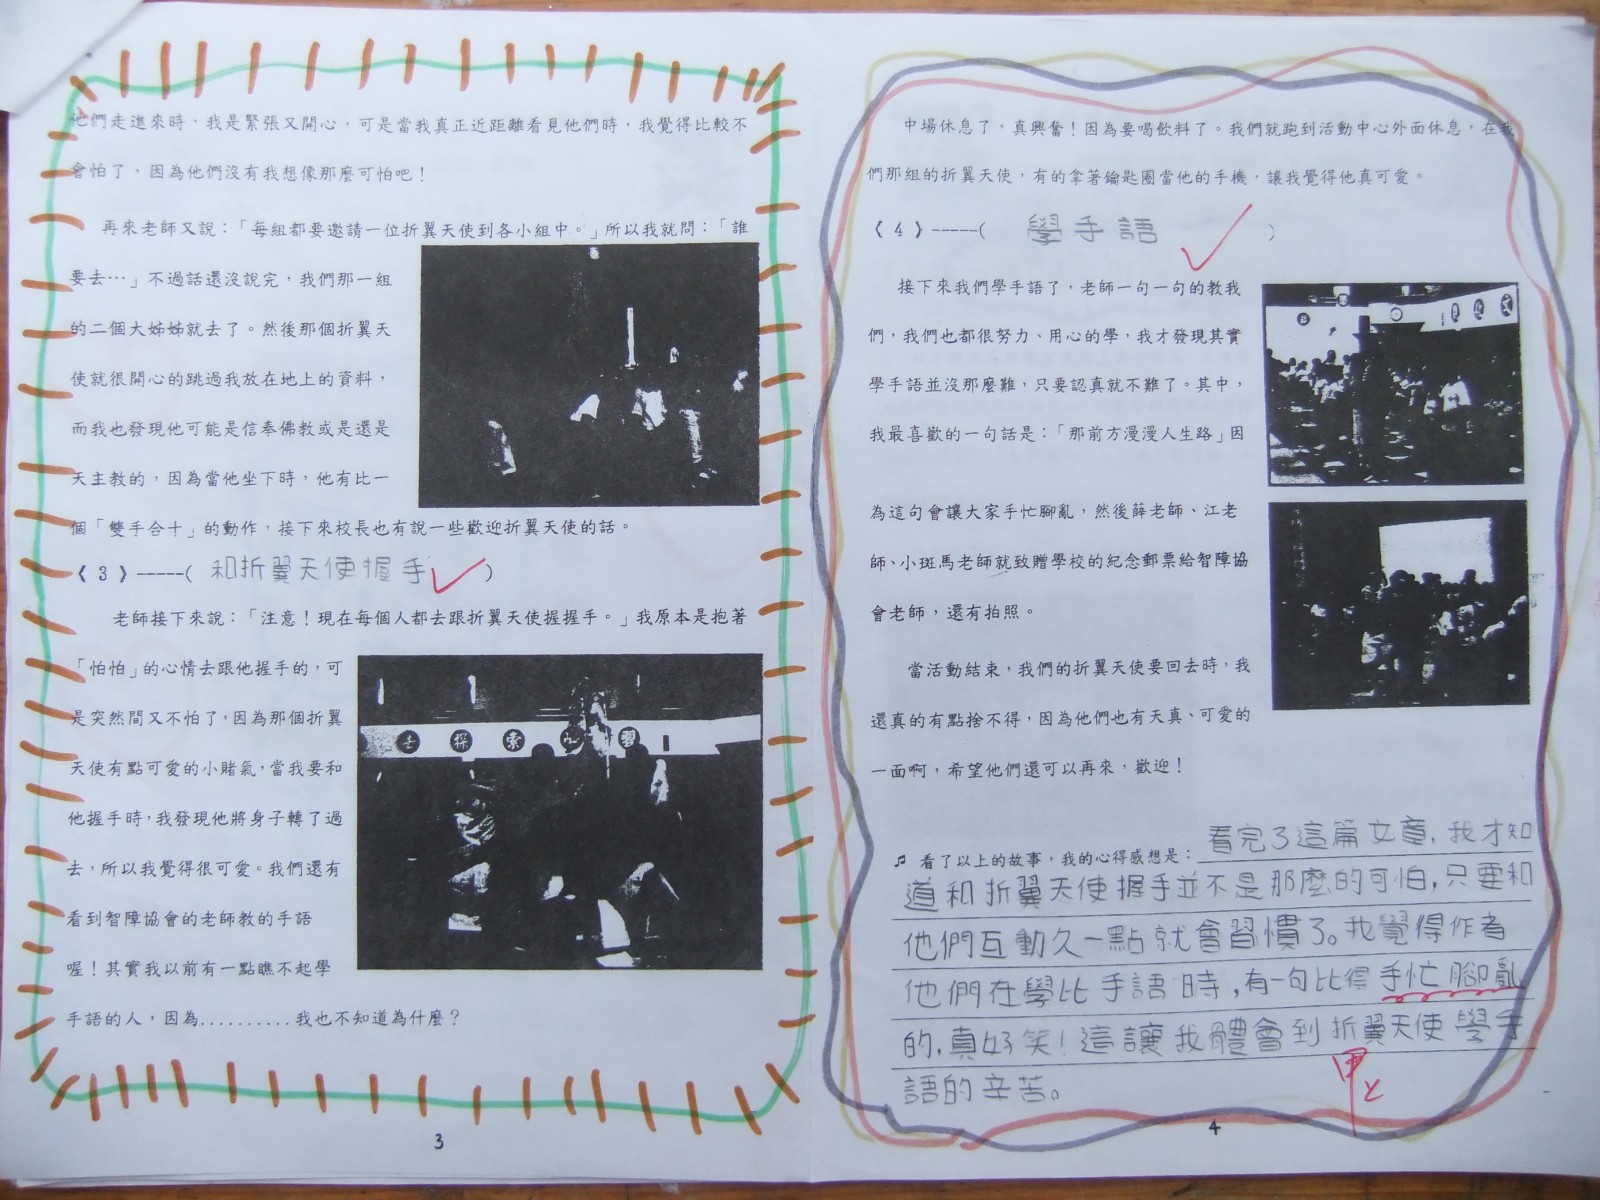 他們走進來時，我是緊張又開心，可是當我真正近距離看見他們時，我覺得比較不
會怕了，因為他們沒有我想像那麼可怕吧！
再來老師又說：「每組都要邀請一位折翼天使到各小組中。」所以我就問：「誰
要去…」不過話還沒說完，我們那一組
的二個大姊姊就去了。然後那個折翼天
使就很開心的跳過我放在地上的資料，
而我也發現他可能是信奉佛教或是還是
天主教的，因為當他坐下時，他有比一
個「雙手合十」的動作，接下來校長也有說一些歡迎折翼天使的話。
《 3 》-----( 和折翼天使握手 )
老師接下來說：「注意！現在每個人都去跟折翼天使握握手。」我原本是抱著
「怕怕」的心情去跟他握手的，可
是突然間又不怕了，因為那個折翼
天使有點可愛的小賭氣，當我要和
他握手時，我發現他將身子轉了過
去，所以我覺得很可愛。我們還有
看到智障協會的老師教的手語
喔！其實我以前有一點瞧不起學
手語的人，因為..........我也不知道為什麼？
士探索 習
3
中場休息了，真興奮！因為要喝飲料了。我們就跑到活動中心外面休息，在我
們那組的折翼天使，有的拿著鑰匙圈當他的手機，讓我覺得他真可愛。
《 4 》-----( 學手語 )
接下來我們學手語了，老師一句一句的教我
們，我們也都很努力、用心的學，我才發現其實
學手語並沒那麼難，只要認真就不難了。其中，
我最喜歡的一句話是：「那前方漫漫人生路」因
為這句會讓大家手忙腳亂，然後薛老師、江老
師、小斑馬老師就致贈學校的紀念郵票給智障協
會老師，還有拍照。
當活動結束，我們的折翼天使要回去時，我
還真的有點捨不得，因為他們也有天真、可愛的
一面啊，希望他們還可以再來，歡迎！
♫ 看了以上的故事，我的心得感想是：看完了這篇文章，我才知
道和折翼天使握手並不是那麼的可怕，只要和
他們互動久一點就會習慣了。我覺得作者
他們在學比手語時，有一句比得手忙腳亂
的，真好笑！這讓我體會到折翼天使學手
語的辛苦。
甲
4